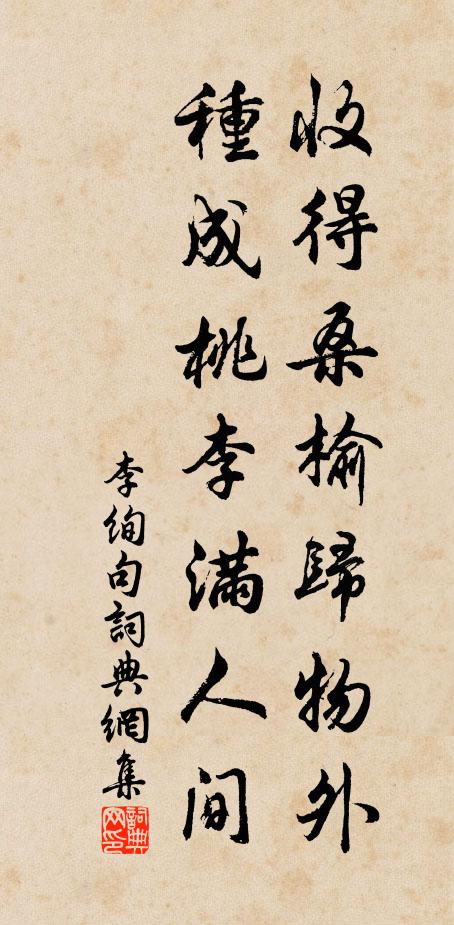 收得桑榆歸物外
種成桃李滿人间
李絢句詞典網集
詞典
网印